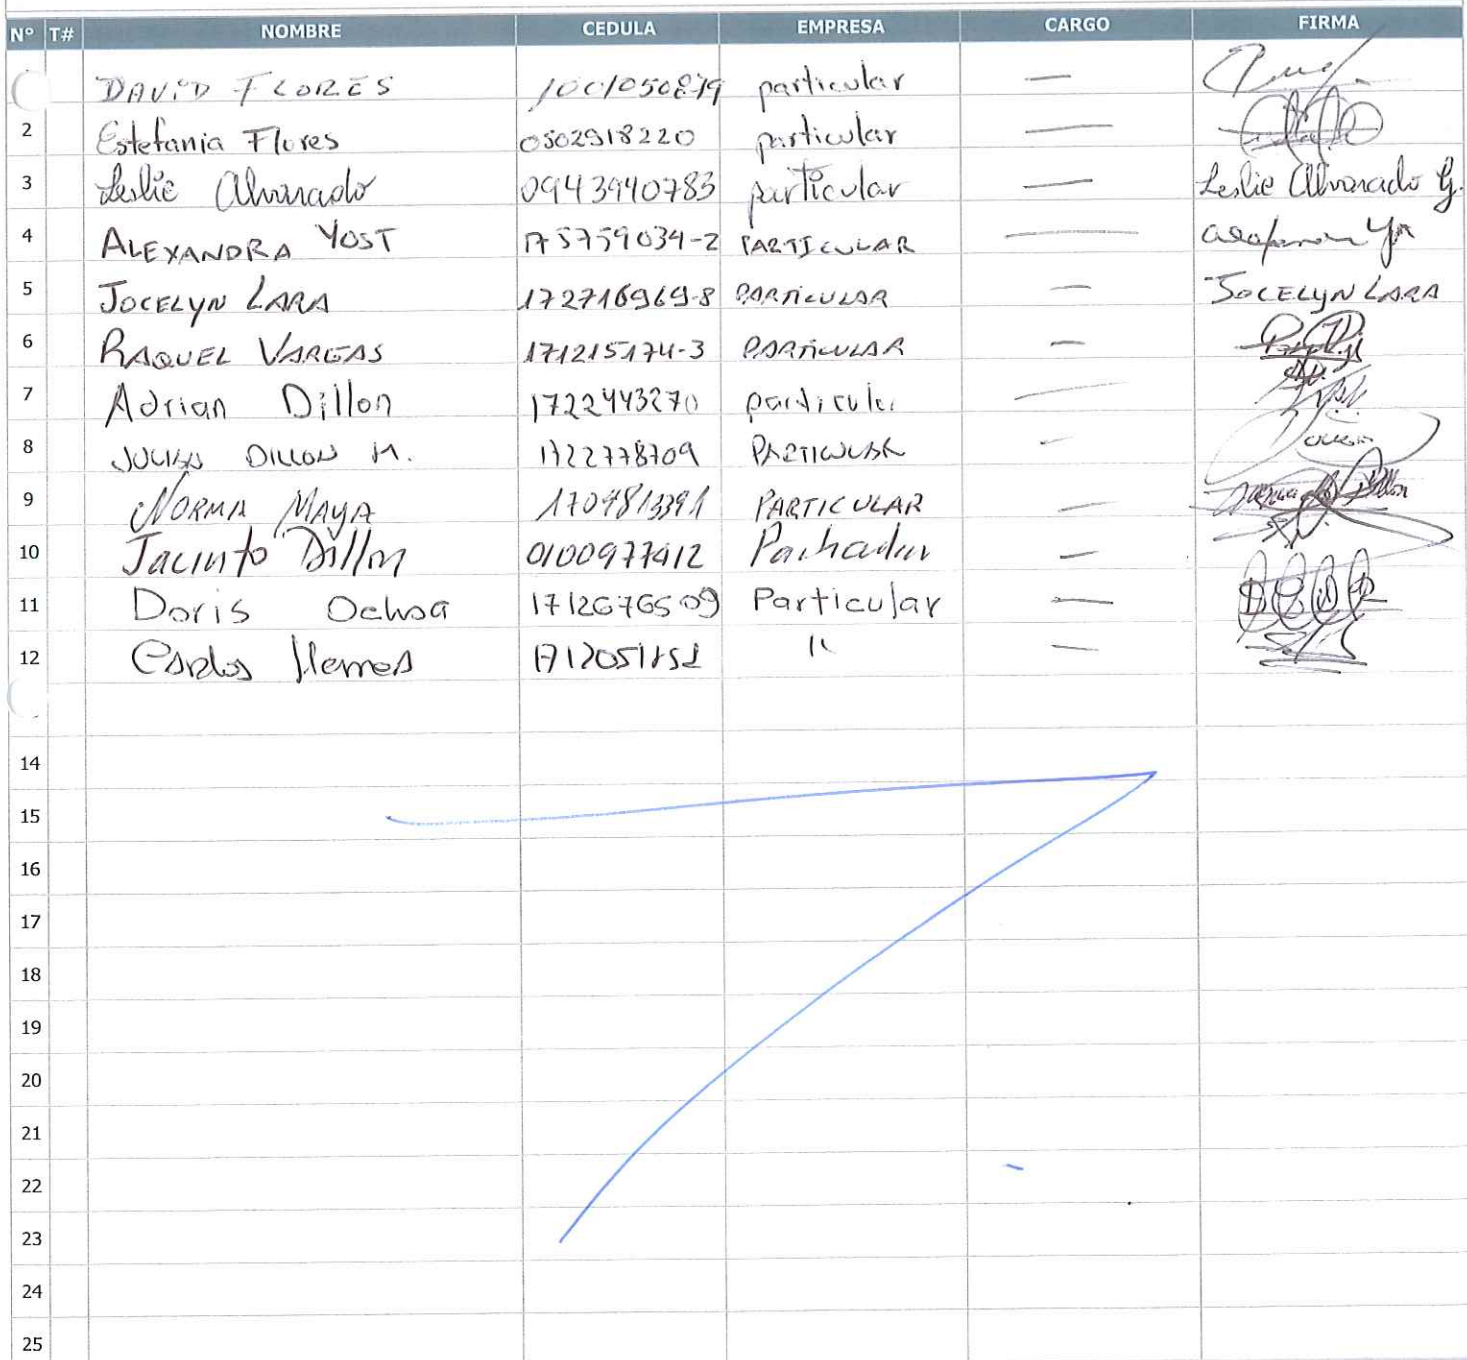 Nº T# NOMBRE CEDULA EMPRESA CARGO FIRMA
DAVID FLORES 1001050879 particular —
2 Estefania Flores 0502918220 particular —
3 Leslie Alvarado 0943940783 particular — Leslie Alvarado G.
4 ALEXANDRA YOST 175759034-2 PARTICULAR —
5 JOCELYN LARA 172716969-8 PARTICULAR — JOCELYN LARA
6 RAQUEL VARGAS 171215174-3 PARTICULAR —
7 Adrian Dillon 1722443270 particular —
8 JULIAN DILLON M. 1722778709 PARTICULAR —
9 NORMA MAYA PARTICULAR —
10 Jacinto Dillon 0100977412 —
11 Doris Ochoa 1712676509 Particular —
12 Carlos 11 —
14
15
16
17
18
19
20
21
22
23
24
25